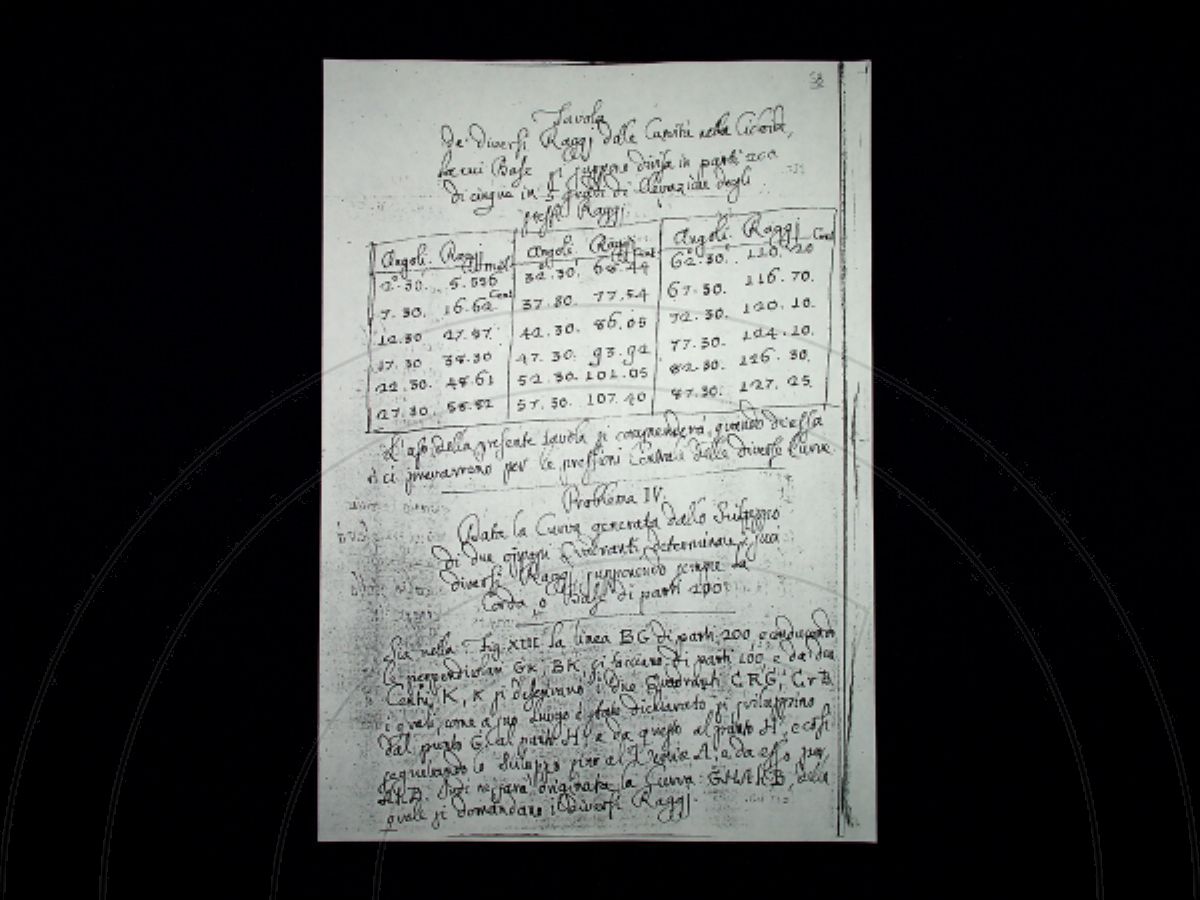 58
Tavola
de' diversi Raggj dalle Curvità nella Cicloide,
la cui Base si suppone divisa in parti 200
di cinque in 5 gradi di Elevazione degli
stessi Raggj.
Angoli. Raggj Angoli. Raggj Angoli. Raggj Cent
2°.30'. 5.556 32.30. 68.44 62.30. 110.20
7.30. 16.62 Cent 37.30. 77.54 67.30. 116.70
12.30 27.57 42.30. 86.05 72.30. 120.10.
17.30 38.30 47.30. 93.92 77.30. 124.10.
22.30. 48.61 52.30. 101.05 82.30. 126.30.
27.30. 58.82 57.30. 107.40 87.30. 127.25.
L'uso della presente tavola si comprenderà, quando di essa
ci serviremo per le pressioni Centrali delle diverse Curve
Problema IV.
Data la Curva generata dallo Sviluppo
di due Quadranti, determinare i suoi
diversi Raggj, supponendo sempre la
Corda, o Base di parti 200.
Sia nella Fig. XIII la linea BG di parti 200 e conducendo
le perpendicolari GK, BK, si facciano di parti 100, e da' due
Centri K, K si descrivano i due Quadranti CRG, CrB
i quali, come a suo luogo è stato dichiarato, si sviluppino
dal punto G al punto H, e da questo al punto H, e così
seguitando lo Sviluppo fino al A, e da esso per
sarà originata la Curva GHAHB, della
quale si domandano i diversi Raggj.